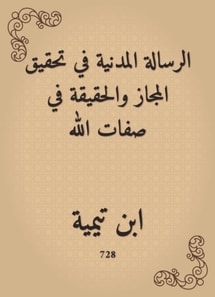 الرسالة المدنية في تحقيق
المجاز والحقيقة في
صفات الله
ابن تيمية
728